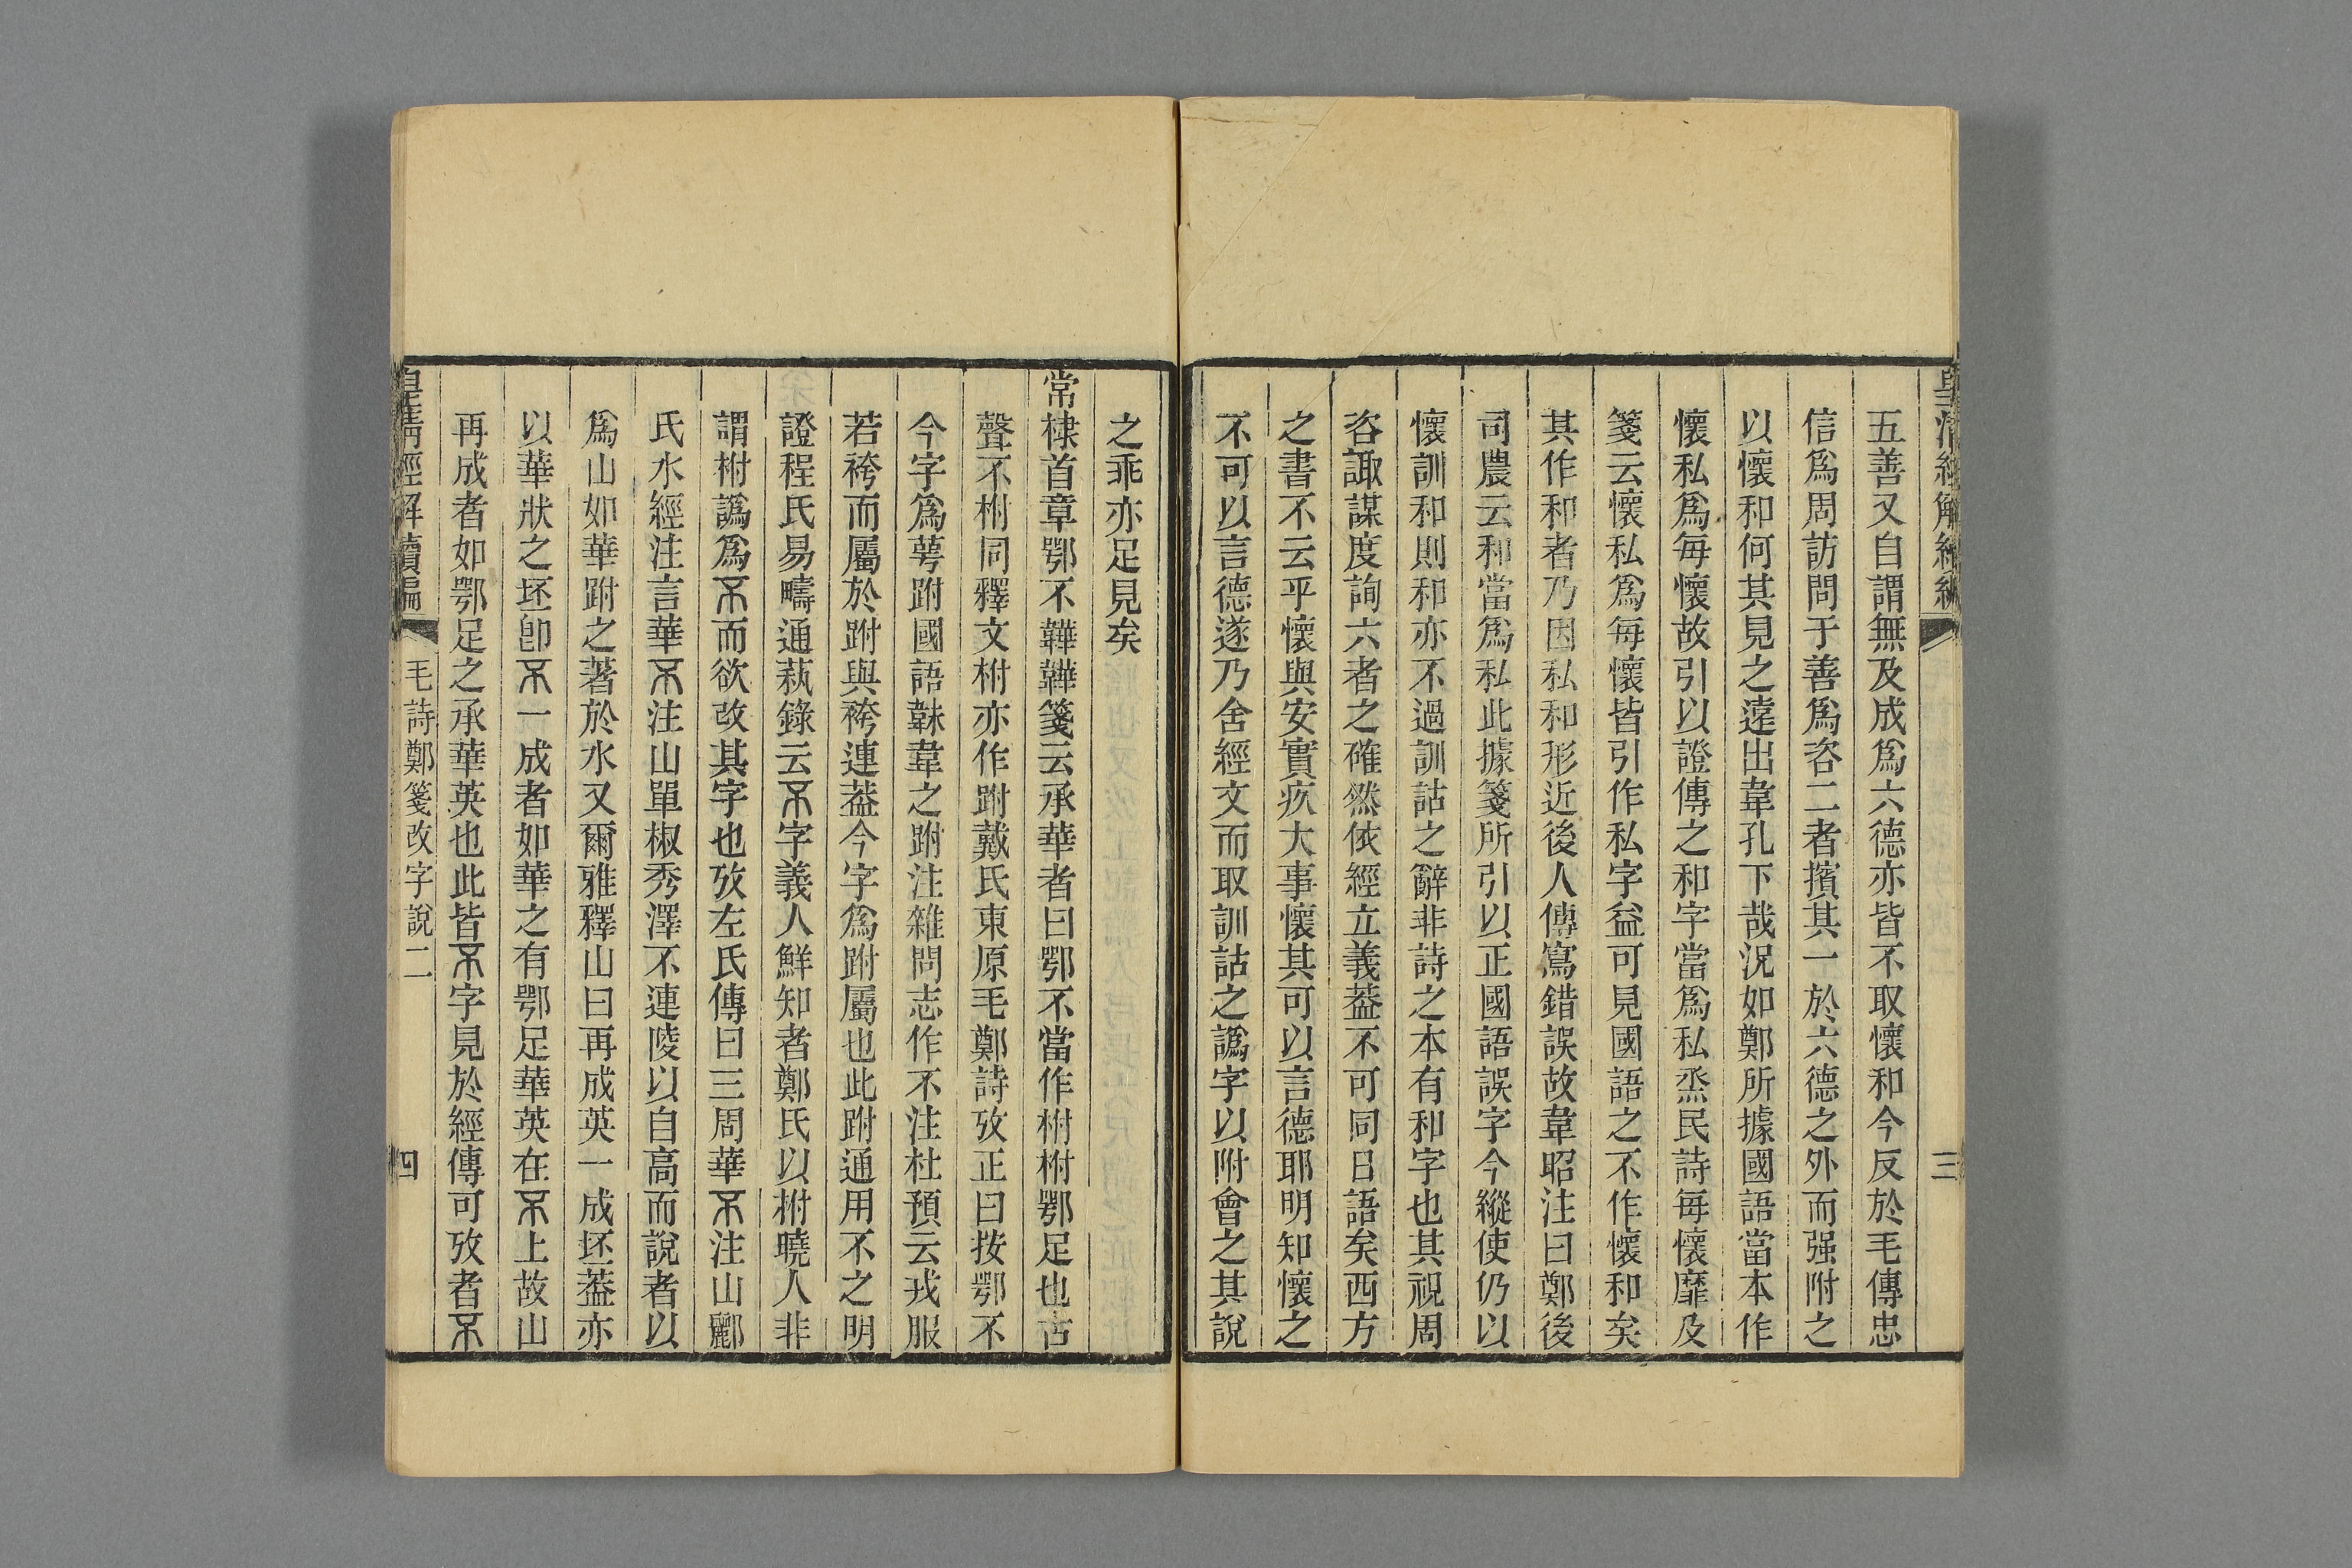 皇清經解續編
三
五善又自謂無及成爲六德亦皆不取懷和今反於毛傳忠
信爲周訪問于善爲咨二者擯其一於六德之外而强附之
以懷和何其見之遠出韋孔下哉況如鄭所據國語當本作
懷私爲每懷故引以證傳之和字當爲私烝民詩每懷靡及
箋云懷私爲每懷皆引作私字益可見國語之不作懷和矣
其作和者乃因私和形近後人傳寫錯誤故韋昭注曰鄭後
司農云和當爲私此據箋所引以正國語誤字今縱使仍以
懷訓和則和亦不過訓詁之辭非詩之本有和字也其視周
咨諏謀度詢六者之確然依經立義葢不可同日語矣西方
之書不云乎懷與安實疚大事懷其可以言德耶明知懷之
不可以言德遂乃舍經文而取訓詁之譌字以附會之其說
之乖亦足見矣
常棣首章鄂不韡韡箋云承華者曰鄂不當作柎柎鄂足也古
聲不柎同釋文柎亦作跗戴氏東原毛鄭詩攷正曰按鄂不
今字爲萼跗國語韎韋之跗注雜問志作不注杜預云戎服
若袴而屬於跗與袴連葢今字爲跗屬也此跗通用不之明
證程氏易疇通蓺錄云不字義人鮮知者鄭氏以柎曉人非
謂柎譌爲不而欲改其字也攷左氏傳曰三周華不注山酈
氏水經注言華不注山單椒秀澤不連陵以自高而說者以
爲山如華跗之著於水又爾雅釋山曰再成英一成坯葢亦
以華狀之坯卽不一成者如華之有鄂足華英在不上故山
再成者如鄂足之承華英也此皆不字見於經傳可攷者不
皇清經解續編
毛詩鄭箋改字說二
四